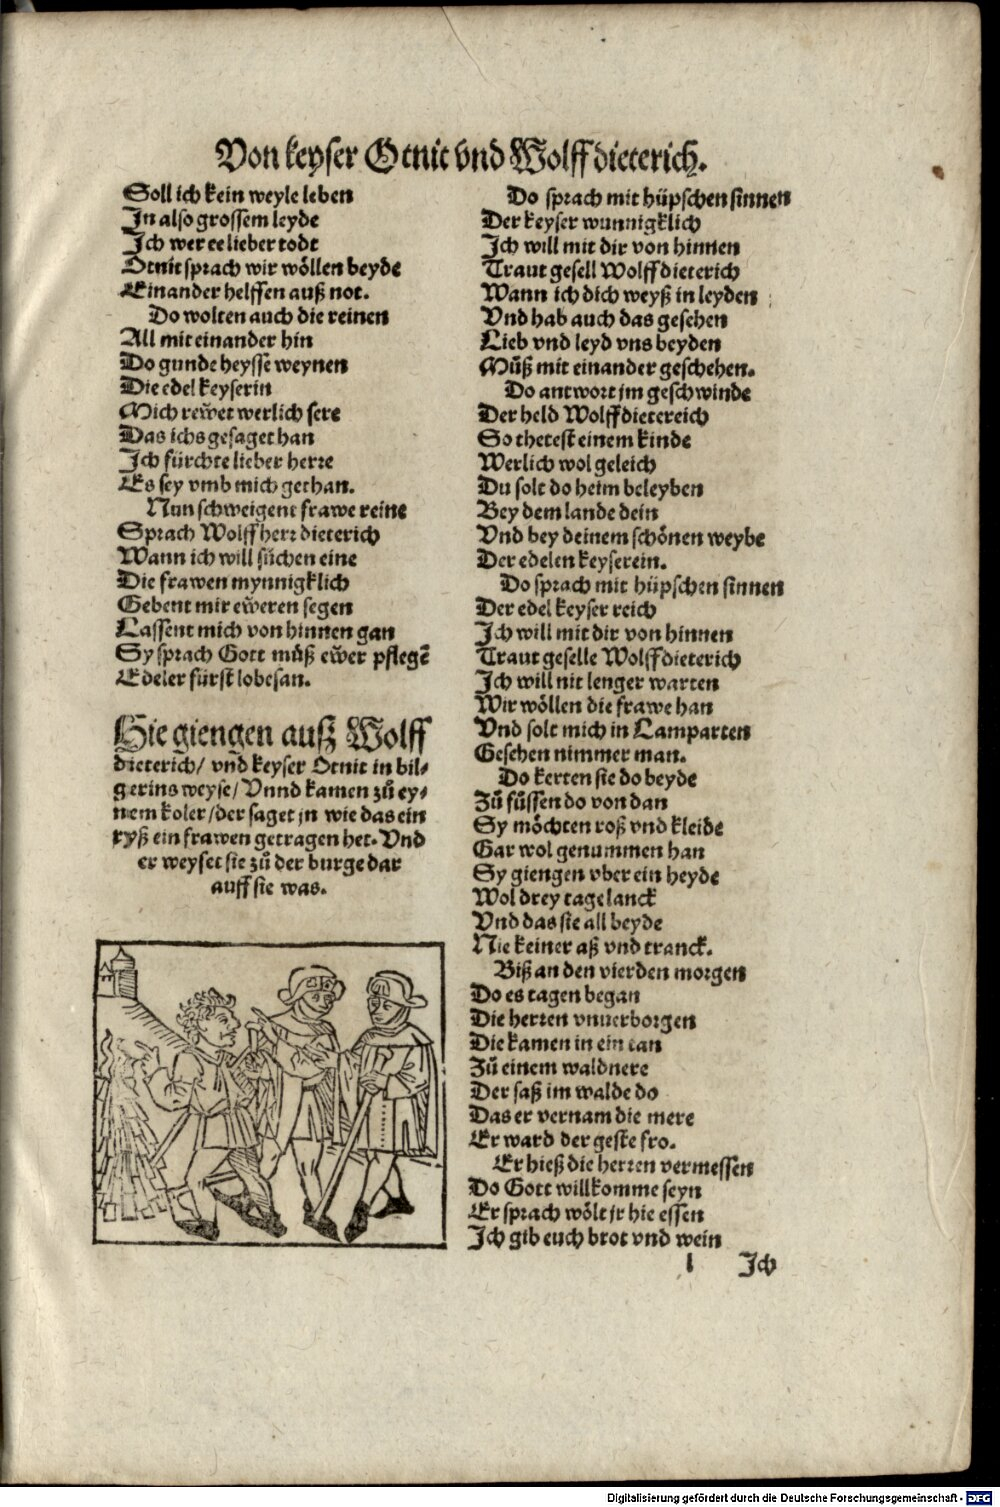 Von keyser Otnit vnd Wolffdieterich.
Soll ich kein weyle leben
In also grossem leyde
Ich wer ee lieber todt
Otnit sprach wir wöllen beyde
Einander helffen auß not.
Do wolten auch die reinen
All mit einander hin
Do gunde heysse weynen
Die edel keyserin
Mich rewet werlich sere
Das ichs gesaget han
Ich fürchte lieber herre
Es sey vmb mich gethan.
Nun schweigent frawe reine
Sprach Wolff herr dieterich
Wann ich will süchen eine
Die frawen mynnigklich
Gebent mir eweren segen
Lassent mich von hinnen gan
Sy sprach Gott müß ewer pflegē
Edeler fürst lobesan.
Hie giengen ausz Wolff
dieterich/ vnd keyser Otnit in bil⸗
gerins weyse/ Vnnd kamen zů ey⸗
nem koler/ der saget jn wie das ein
ryß ein frawen getragen het. Vnd
er weyset sie zů der burge dar
auff sie was.
Do sprach mit hüpschen sinnen
Der keyser wunnigklich
Ich will mit dir von hinnen
Traut gesell Wolffdieterich
Wann ich dich weyß in leyden
Vnd hab auch das gesehen
Lieb vnd leyd vns beyden
Můß mit einander geschehen.
Do antwort jm geschwinde
Der held Wolffdietereich
So thetest einem kinde
Werlich wol geleich
Du solt do heim beleyben
Bey dem lande dein
Vnd bey deinem schönen weybe
Der edelen keyserein.
Do sprach mit hüpschen sinnen
Der edel keyser reich
Ich will mit dir von hinnen
Traut geselle Wolffdieterich
Ich will nit lenger warten
Wir wöllen die frawe han
Vnd solt mich in Lamparten
Gesehen nimmer man.
Do kerten sie do beyde
Zů füssen do von dan
Sy möchten roß vnd kleide
Gar wol genummen han
Sy giengen vber ein heyde
Wol drey tage lanck
Vnd das sie all beyde
Nie keiner aß vnd tranck.
Biß an den vierden morgen
Do es tagen began
Die herren vnuerborgen
Die kamen in ein tan
Zů einem waldnere
Der saß im walde do
Das er vernam die mere
Er ward der geste fro.
Er hieß die herren vermessen
Do Gott willkomme seyn
Er sprach wölt jr hie essen
Ich gib euch brot vnd wein
l Ich
Digitalisierung gefördert durch die Deutsche Forschungsgemeinschaft - DFG